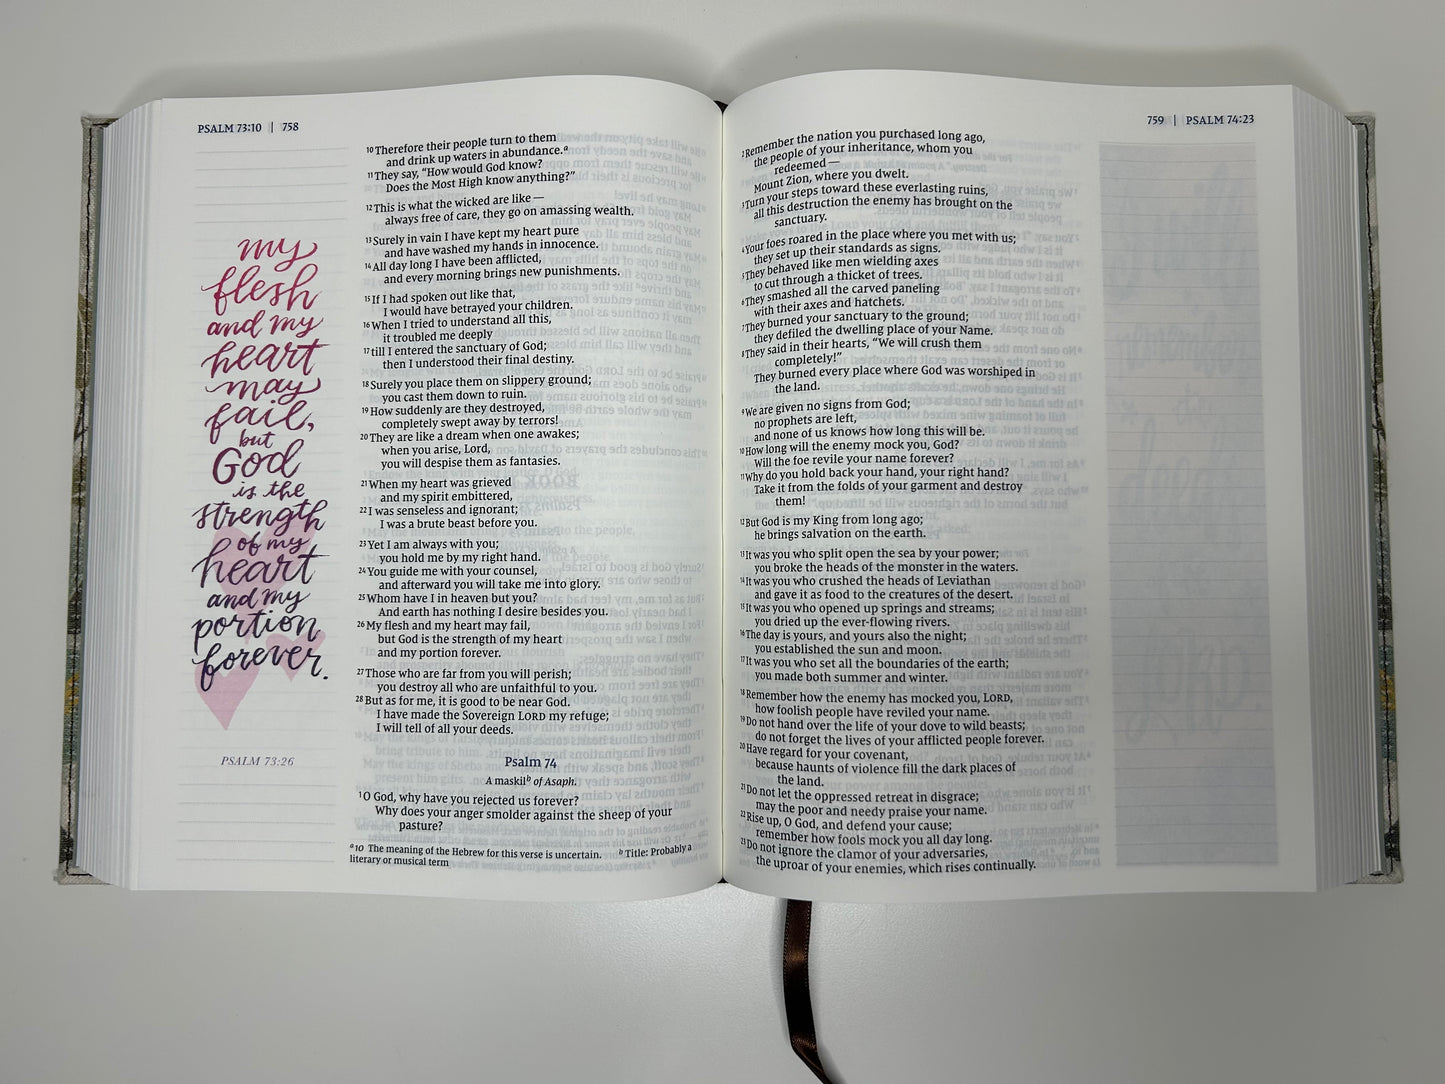 PSALM 73:10 | 758
my
flesh
and my
heart
may
fail,
but
God
is the
strength
of my
heart
and my
portion
forever.
PSALM 73:26
10 Therefore their people turn to them
and drink up waters in abundance.a
11 They say, “How would God know?
Does the Most High know anything?”
12 This is what the wicked are like—
always free of care, they go on amassing wealth.
13 Surely in vain I have kept my heart pure
and have washed my hands in innocence.
14 All day long I have been afflicted,
and every morning brings new punishments.
15 If I had spoken out like that,
I would have betrayed your children.
16 When I tried to understand all this,
it troubled me deeply
17 till I entered the sanctuary of God;
then I understood their final destiny.
18 Surely you place them on slippery ground;
you cast them down to ruin.
19 How suddenly are they destroyed,
completely swept away by terrors!
20 They are like a dream when one awakes;
when you arise, Lord,
you will despise them as fantasies.
21 When my heart was grieved
and my spirit embittered,
22 I was senseless and ignorant;
I was a brute beast before you.
23 Yet I am always with you;
you hold me by my right hand.
24 You guide me with your counsel,
and afterward you will take me into glory.
25 Whom have I in heaven but you?
And earth has nothing I desire besides you.
26 My flesh and my heart may fail,
but God is the strength of my heart
and my portion forever.
27 Those who are far from you will perish;
you destroy all who are unfaithful to you.
28 But as for me, it is good to be near God.
I have made the Sovereign LORD my refuge;
I will tell of all your deeds.
Psalm 74
A maskilb of Asaph.
1 O God, why have you rejected us forever?
Why does your anger smolder against the sheep of your
pasture?
a 10 The meaning of the Hebrew for this verse is uncertain. b Title: Probably a
literary or musical term
759 | PSALM 74:23
2 Remember the nation you purchased long ago,
the people of your inheritance, whom you
redeemed—
Mount Zion, where you dwelt.
3 Turn your steps toward these everlasting ruins,
all this destruction the enemy has brought on the
sanctuary.
4 Your foes roared in the place where you met with us;
they set up their standards as signs.
5 They behaved like men wielding axes
to cut through a thicket of trees.
6 They smashed all the carved paneling
with their axes and hatchets.
7 They burned your sanctuary to the ground;
they defiled the dwelling place of your Name.
8 They said in their hearts, “We will crush them
completely!”
They burned every place where God was worshiped in
the land.
9 We are given no signs from God;
no prophets are left,
and none of us knows how long this will be.
10 How long will the enemy mock you, God?
Will the foe revile your name forever?
11 Why do you hold back your hand, your right hand?
Take it from the folds of your garment and destroy
them!
12 But God is my King from long ago;
he brings salvation on the earth.
13 It was you who split open the sea by your power;
you broke the heads of the monster in the waters.
14 It was you who crushed the heads of Leviathan
and gave it as food to the creatures of the desert.
15 It was you who opened up springs and streams;
you dried up the ever-flowing rivers.
16 The day is yours, and yours also the night;
you established the sun and moon.
17 It was you who set all the boundaries of the earth;
you made both summer and winter.
18 Remember how the enemy has mocked you, LORD,
how foolish people have reviled your name.
19 Do not hand over the life of your dove to wild beasts;
do not forget the lives of your afflicted people forever.
20 Have regard for your covenant,
because haunts of violence fill the dark places of
the land.
21 Do not let the oppressed retreat in disgrace;
may the poor and needy praise your name.
22 Rise up, O God, and defend your cause;
remember how fools mock you all day long.
23 Do not ignore the clamor of your adversaries,
the uproar of your enemies, which rises continually.